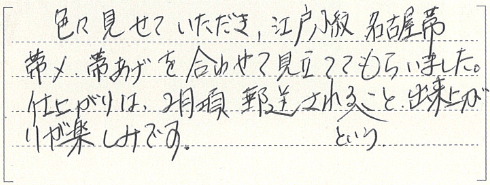 色々見せていただき、江戸小紋 名古屋帯
帯〆、帯あげを合わせて見立ててもらいました。
仕上がりは、2月頃 郵送されるということ 出来上が
りが楽しみです。